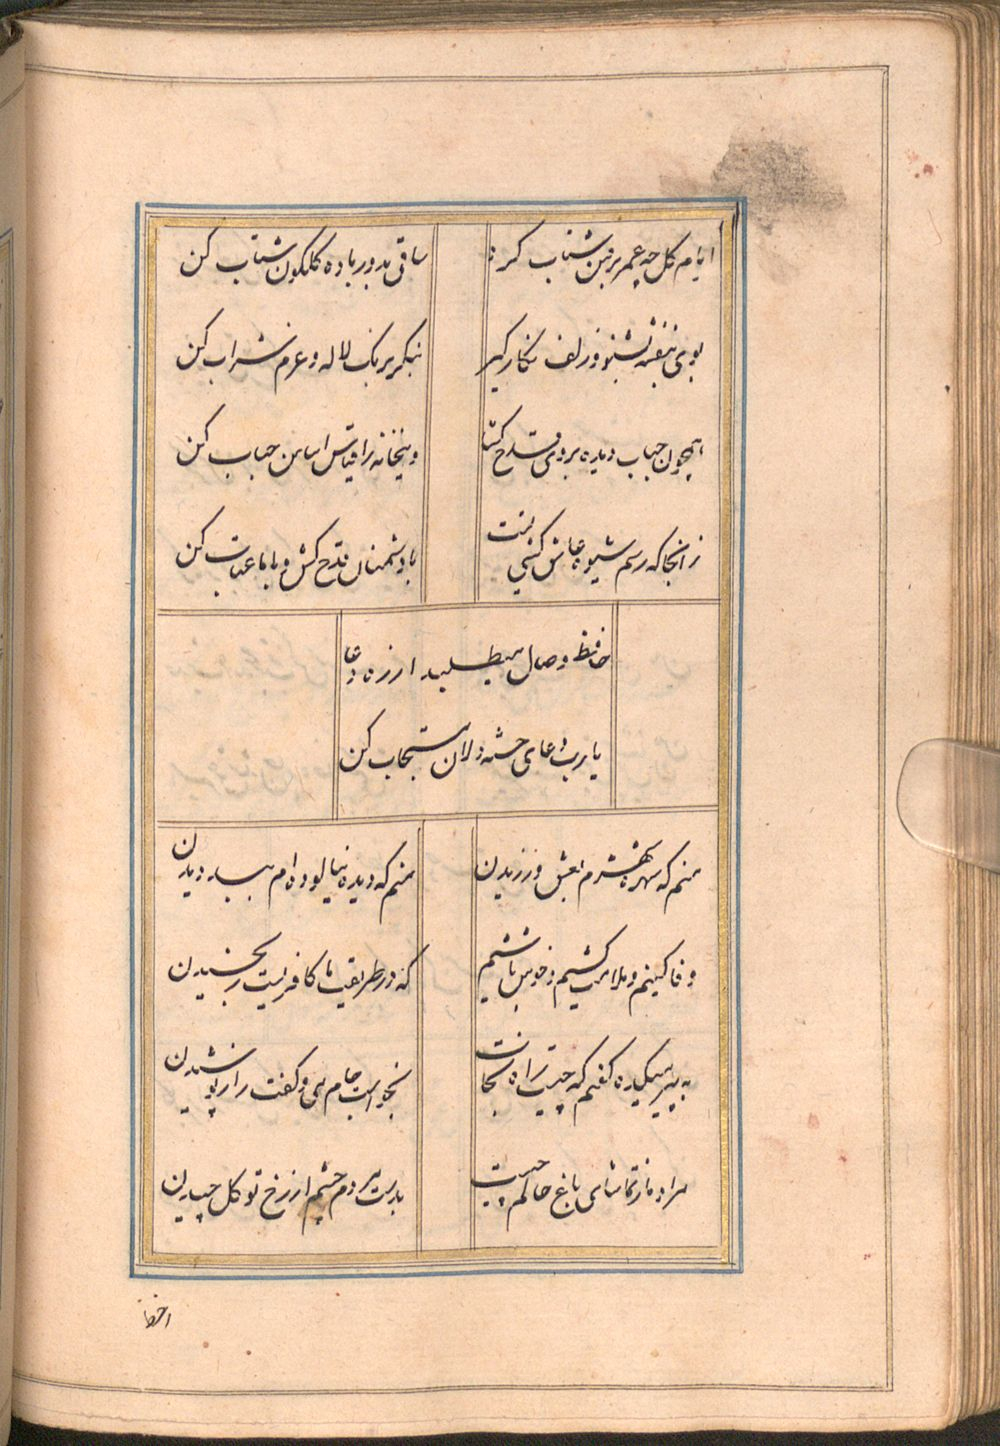 ایام کل چو عمر برفتن شتاب کرد
ساقی بدور باده کلکون شتاب کن
بوی بنفشه بشنو و زلف نکار کیر
بنکر برنک لاله و عزم شراب کن
همچون حباب دیده بروی قدح کشا
وینخانه را قیاس اساس از حباب کن
زانجا که رسم شیوه عاشق کشی تست
با دشمنان قدح کش و با ما عتاب کن
حافظ وصال میطلبد از ره دعا
یارب دعای خسته دلان مستجاب کن
منم که شهره شهرم بعشق ورزیدن
منم که دیده نیالوده‌ام ببد دیدن
وفا کنیم و ملامت کشیم و خوش باشیم
که در طریقت ما کافریست رنجیدن
به پیر میکده کفتم که چیست راه نجات
بخواست جام می و کفت راز پوشیدن
مراد ما ز تماشای باغ عالم چیست
بدست مردم چشم از رخ تو کل چیدن